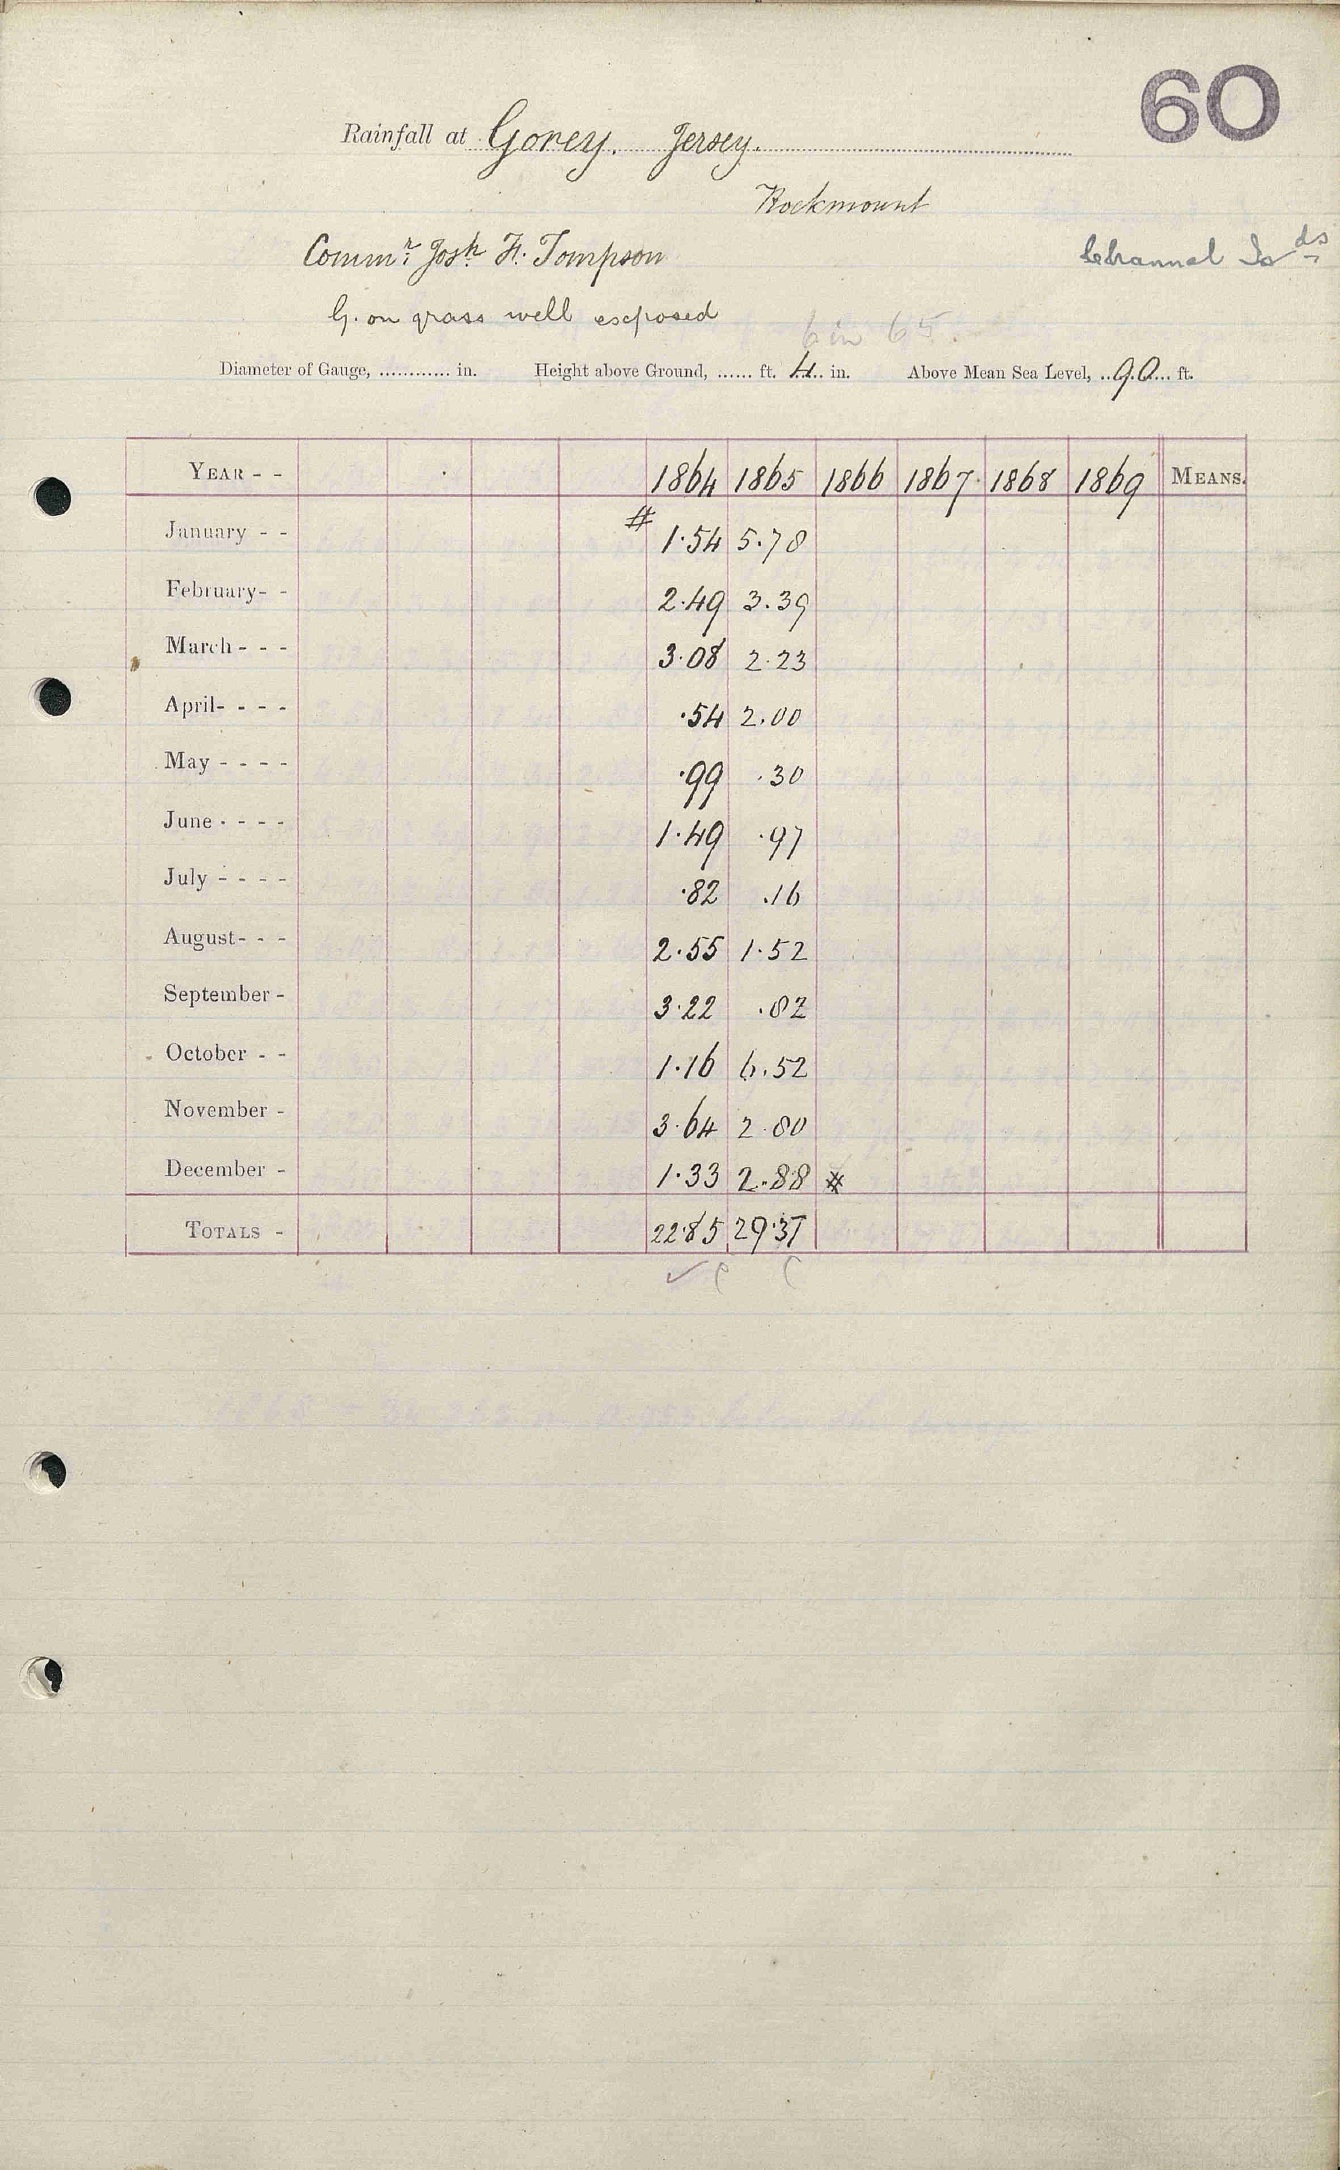 60
Rainfall at Gorey. Jersey.
Rockmount
Commr Josh H. Tompson
Channel Isds
G. on grass well exposed
6 in 65.
Diameter of Gauge, ............ in. Height above Ground, ...... ft. 4 in. Above Mean Sea Level, ..90... ft.
YEAR - - 1864 1865 1866 1867 1868 1869 MEANS.
January - - # 1.54 5.78
February- - 2.49 3.39
March - - - 3.08 2.23
April- - - - .54 2.00
May - - - - .99 .30
June - - - - 1.49 .97
July - - - - .82 .16
August- - - 2.55 1.52
September - 3.22 .82
October - - 1.16 6.52
November - 3.64 2.80
December - 1.33 2.88 #
TOTALS - 22.85 29.37
✓ c c